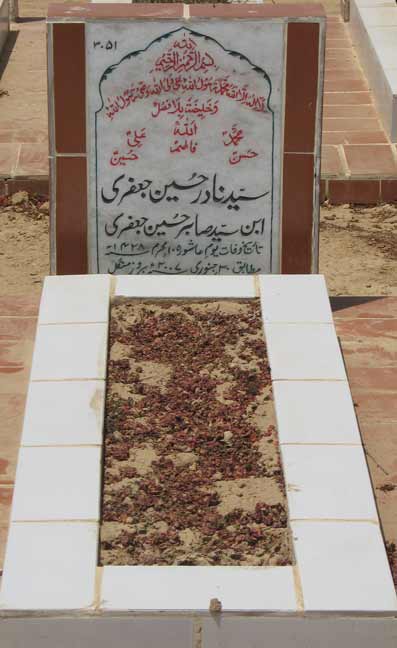 ۳۰۵۱
بسم الله الرحمن الرحیم
لا اله الا الله محمد رسول الله علی ولی الله وصی رسول الله
وخلیفتہ بلا فصل
الله
محمدؐ علیؑ
فاطمہؑ
حسنؑ حسینؑ
سید نادر حسین جعفری
ابن سید صابر حسین جعفری
تاریخ وفات یوم عاشور ۱۰ محرم ۱۴۲۸ھ
مطابق ۳۰ جنوری ۲۰۰۷ء بروز منگل